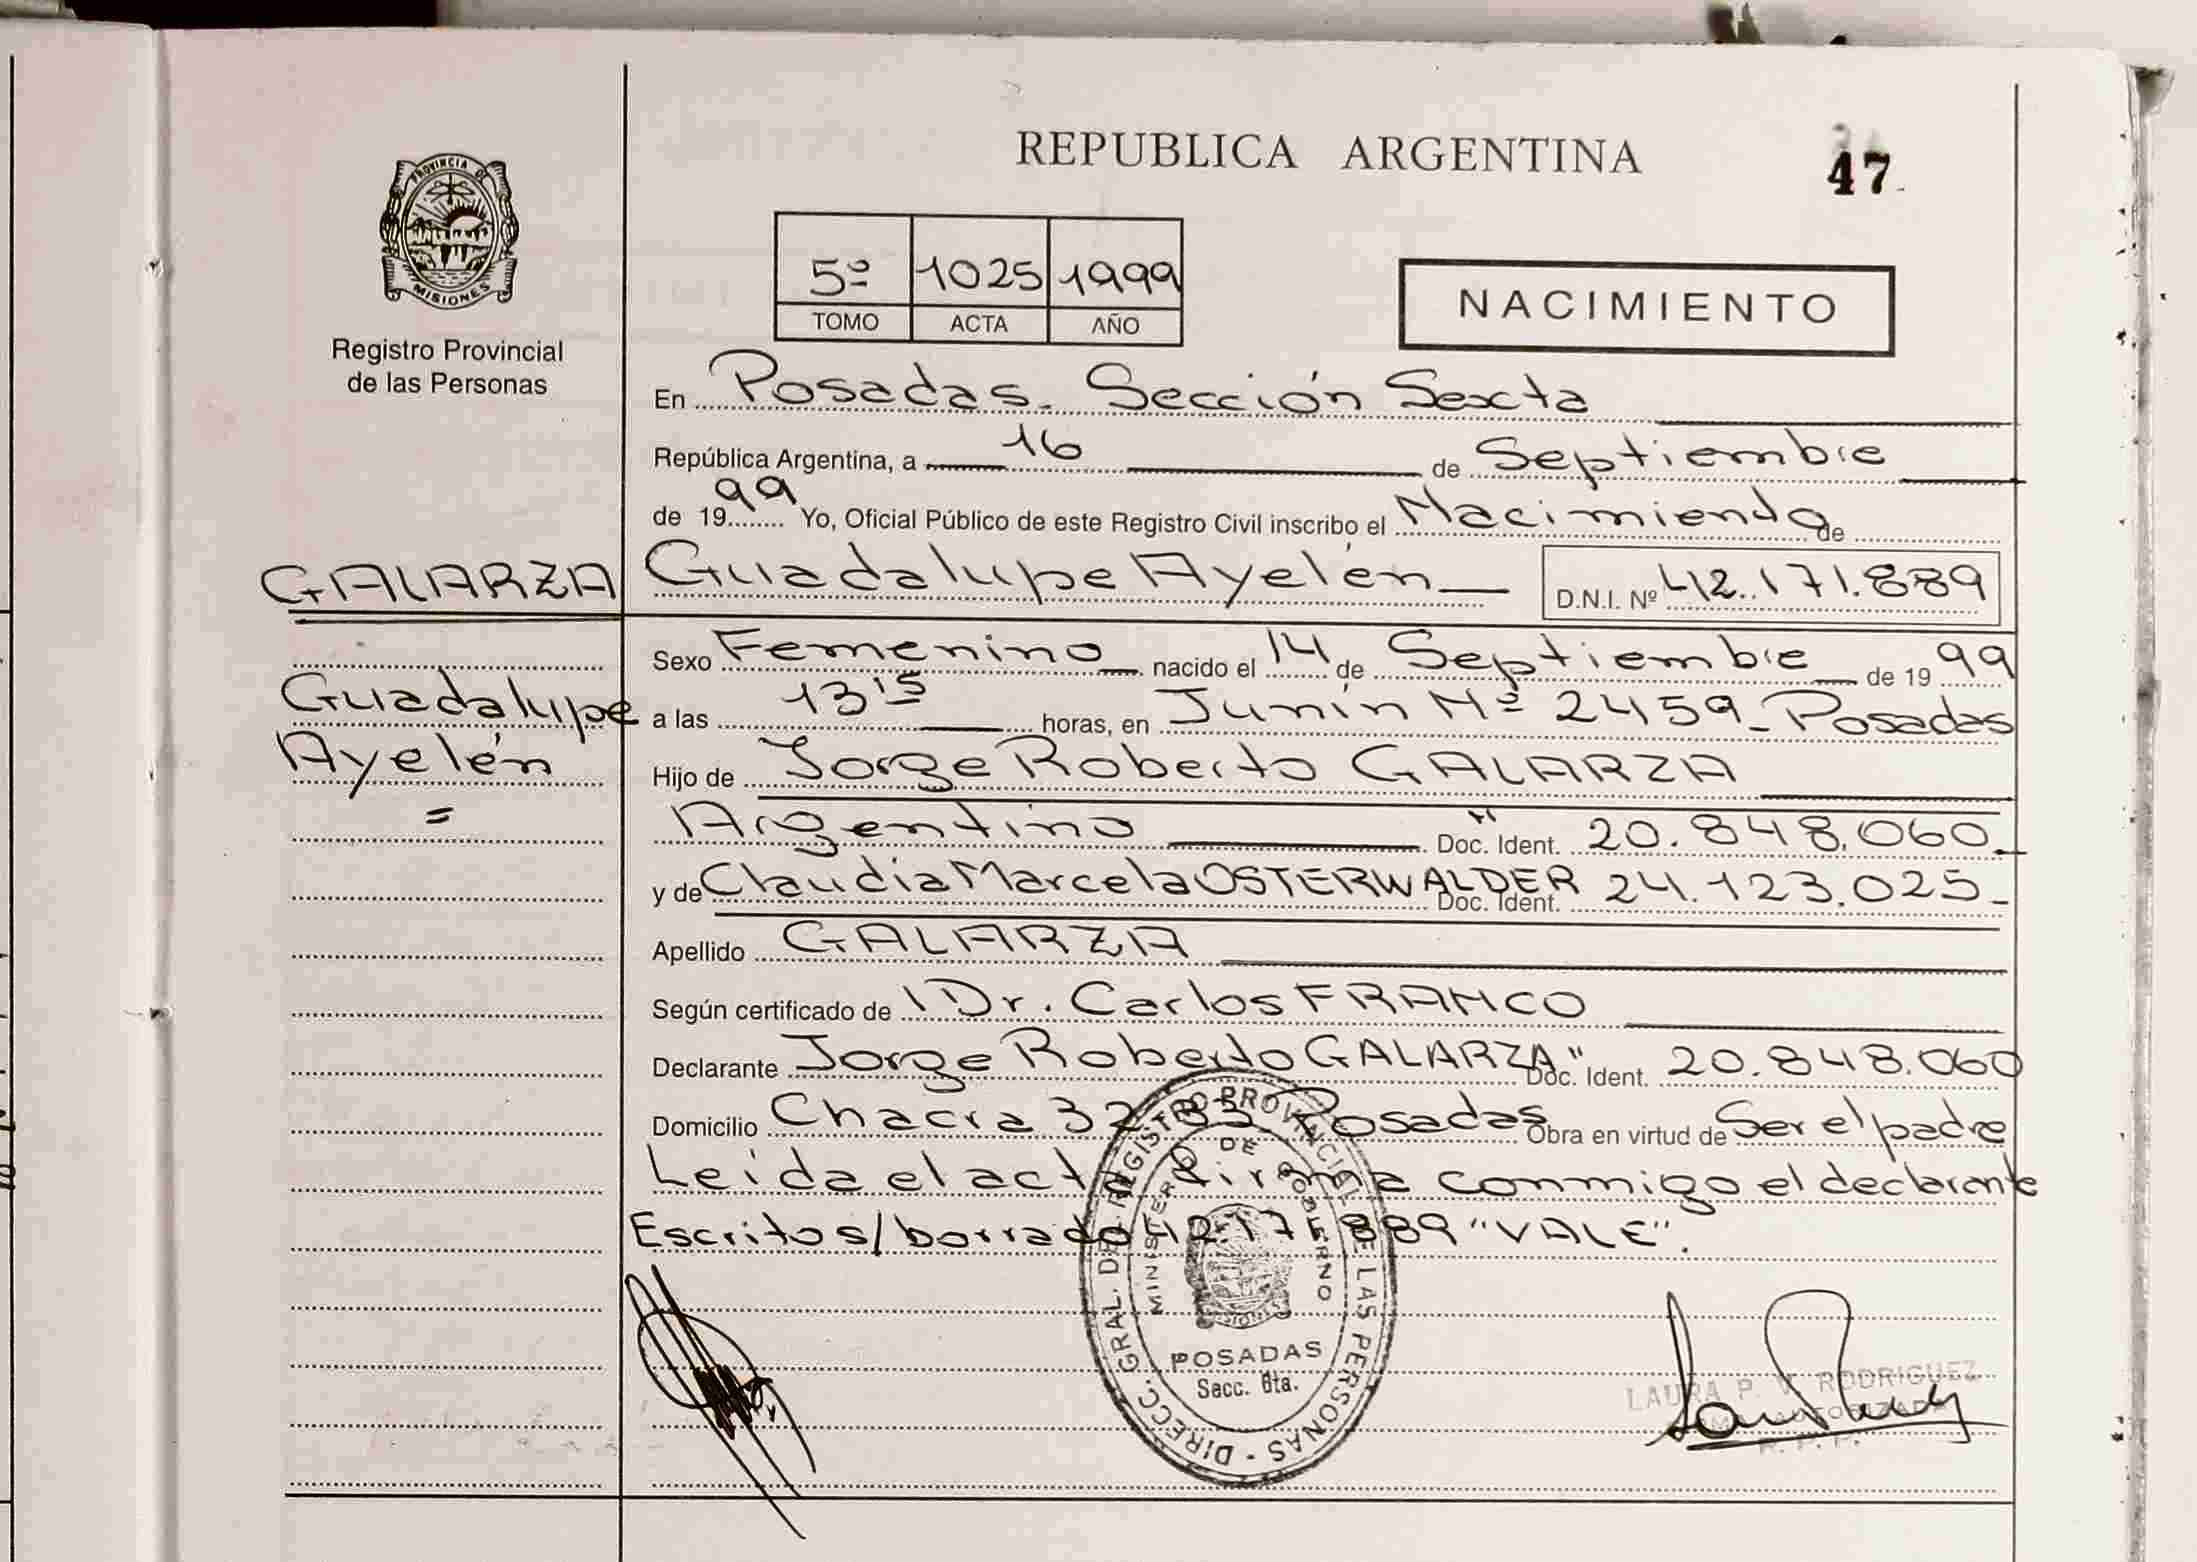 REPUBLICA ARGENTINA
47
PROVINCIA DE
MISIONES
Registro Provincial
de las Personas
5º 1025 1999
TOMO ACTA AÑO
NACIMIENTO
En Posadas. Sección Sexta
República Argentina, a 16 de Septiembre
de 1999 Yo, Oficial Público de este Registro Civil inscribo el Nacimiento de
GALARZA Guadalupe Ayelén D.N.I. Nº 42.171.889
Sexo Femenino nacido el 14 de Septiembre de 1999
Guadalupe
Ayelén
=
a las 13'15 horas, en Junín Nº 2459 - Posadas
Hijo de Jorge Roberto GALARZA
Argentino Doc. Ident. 20.848.060
y de Claudia Marcela OSTERWALDER Doc. Ident. 24.123.025
Apellido GALARZA
Según certificado de Dr. Carlos FRANCO
Declarante Jorge Roberto GALARZA Doc. Ident. 20.848.060
Domicilio Chacra 32-33 Posadas Obra en virtud de Ser el padre
Leída el acta firma conmigo el declarante
Escritos/borrado 42.171.889 "VALE".
DIRECC. GRAL. DEL REGISTRO PROVINCIAL DE LAS PERSONAS
MINISTERIO DE GOBIERNO
MISIONES
POSADAS
Secc. 6ta.
LAURA P. V. RODRIGUEZ
AUTORIZADA
R. P. P.